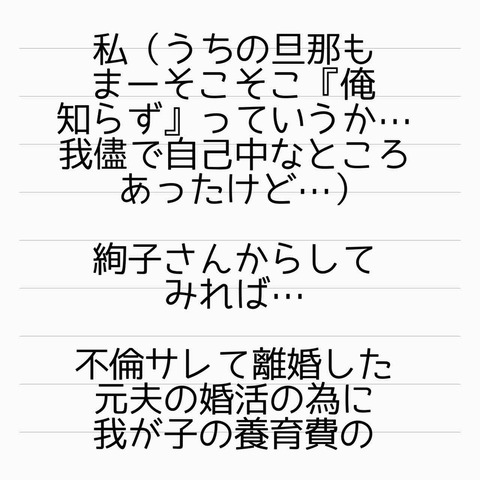 私（うちの旦那も
まーそこそこ『俺
知らず』っていうか…
我儘で自己中なところ
あったけど…）
絢子さんからして
みれば…
不倫サレて離婚した
元夫の婚活の為に
我が子の養育費の